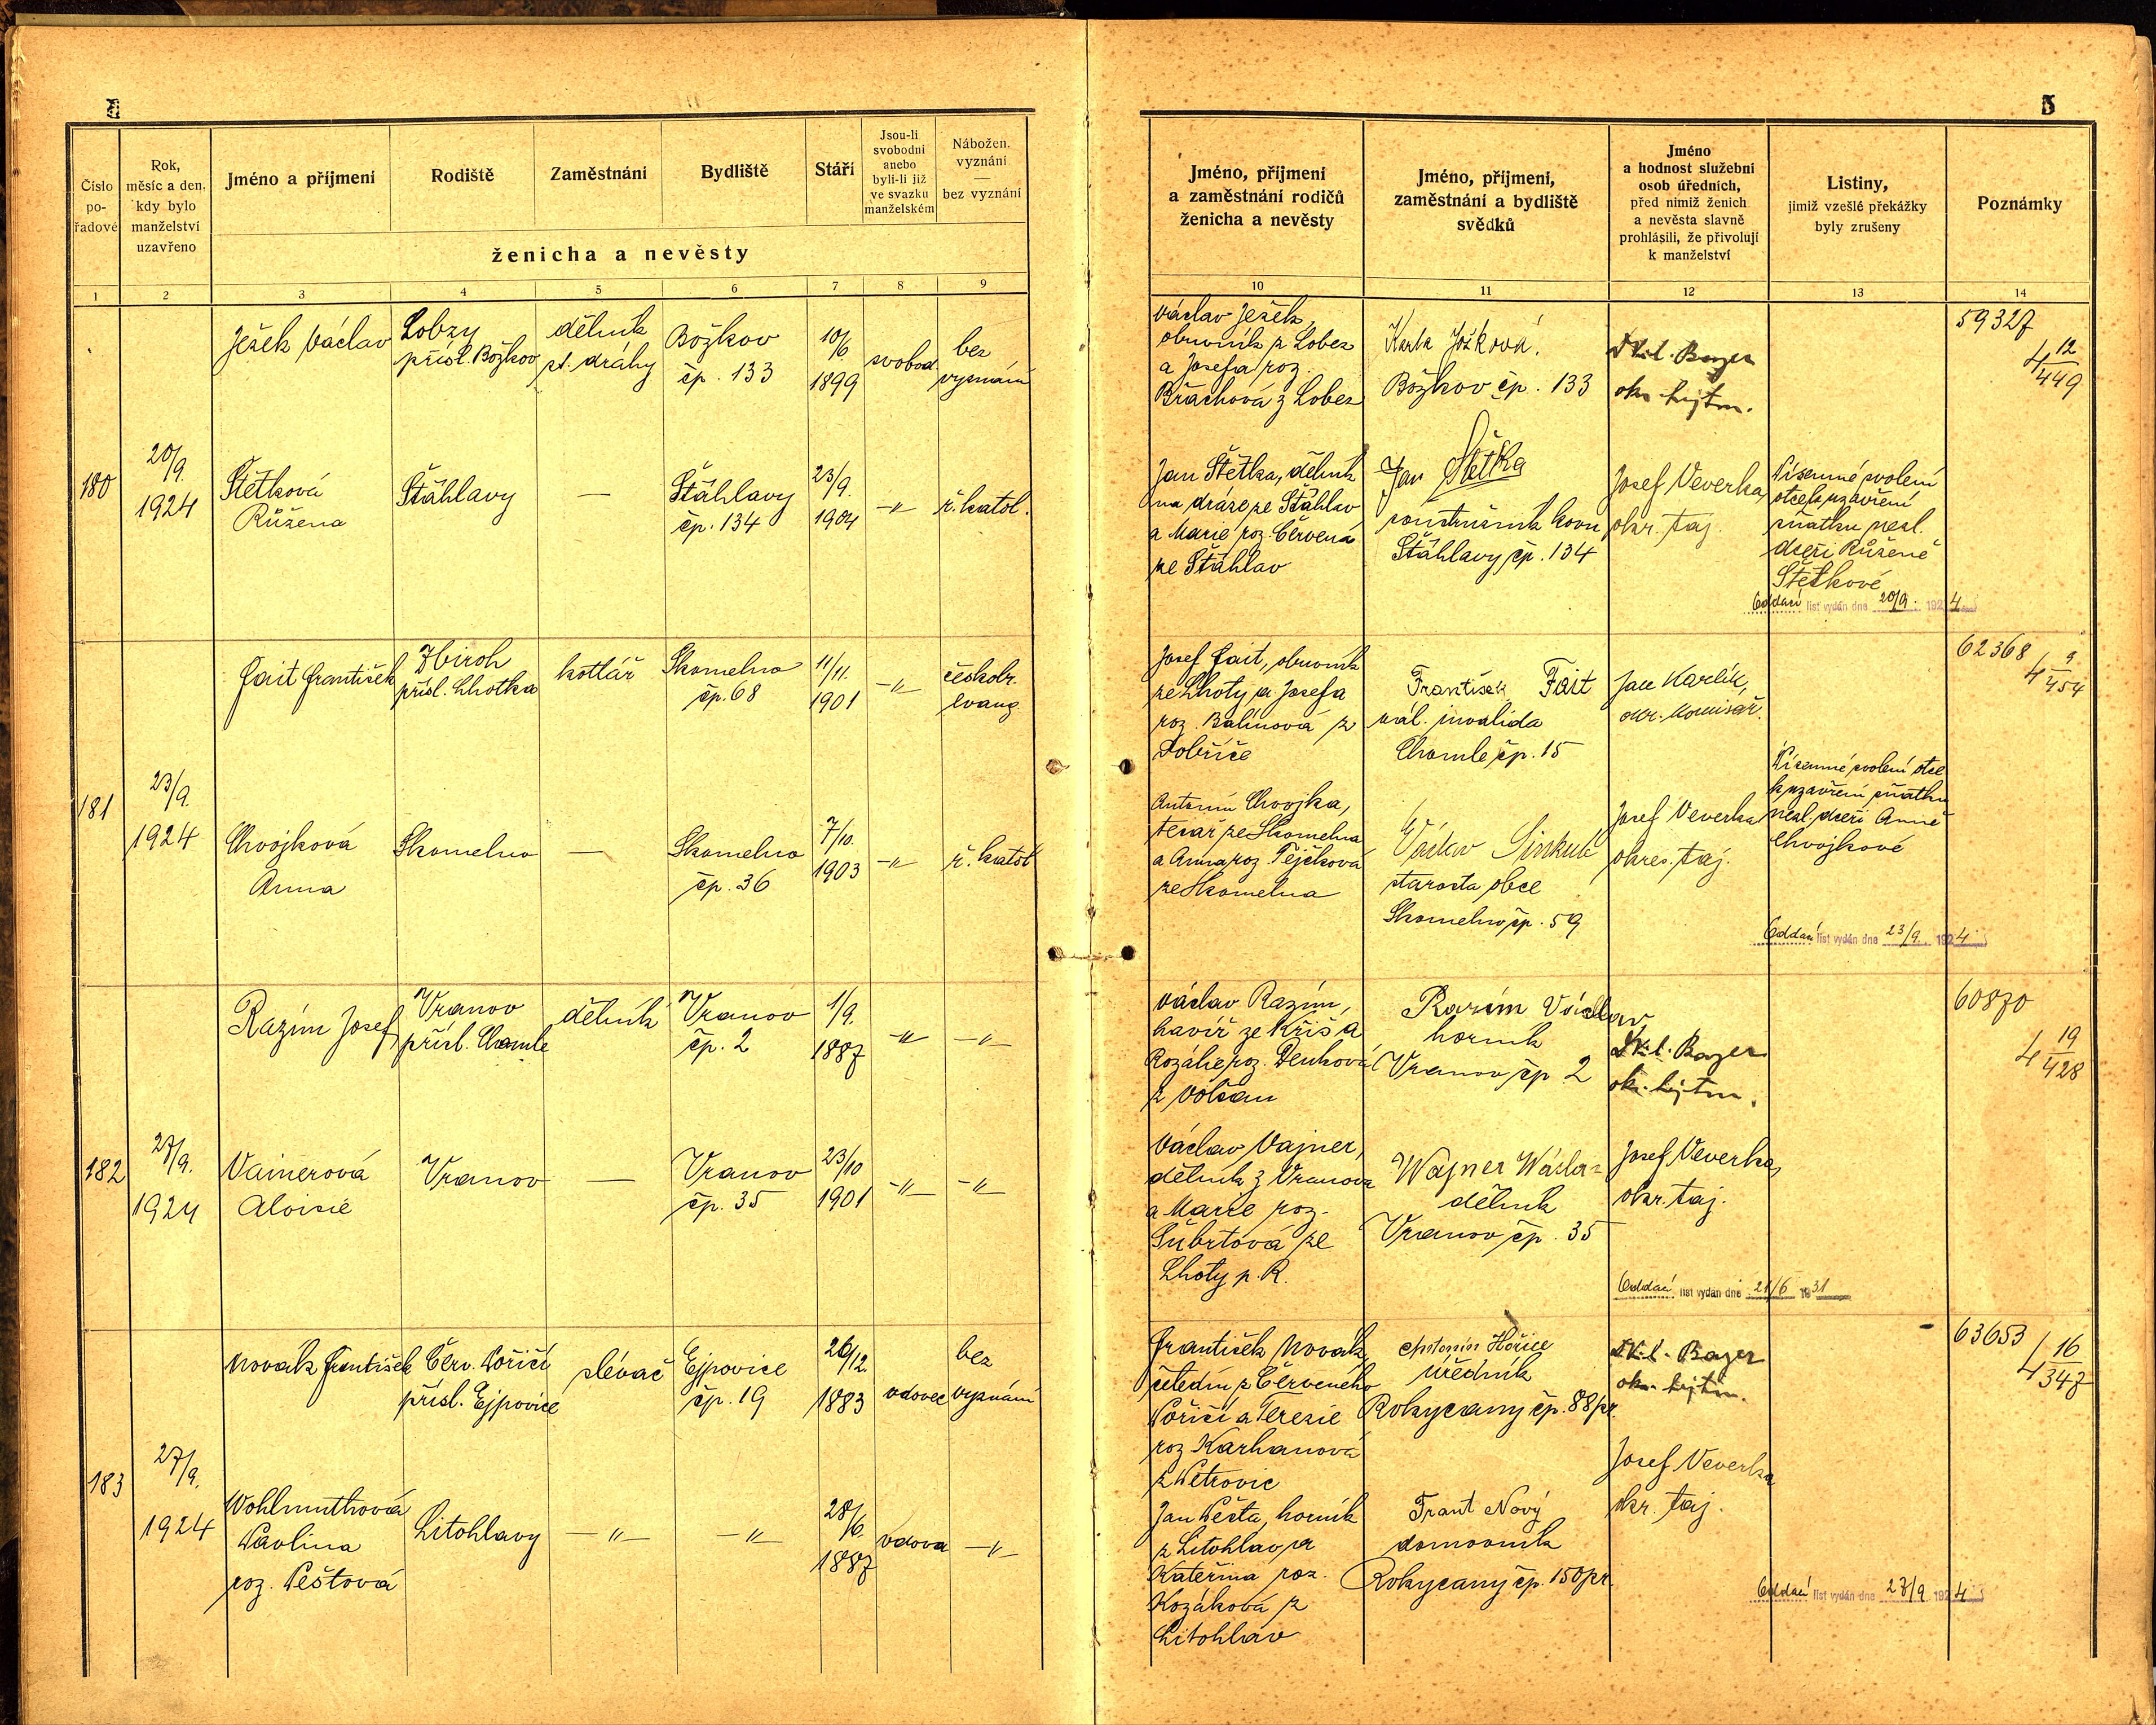 Číslo
po-
řadové
Rok,
měsíc a den,
kdy bylo
manželství
uzavřeno
Jméno a příjmení
Rodiště
Zaměstnání
Bydliště
Stáří
Jsou-li
svobodni
anebo
byli-li již
ve svazku
manželském
Nábožen.
vyznání
—
bez vyznání
ženicha a nevěsty
1 2 3 4 5 6 7 8 9
Ježek Václav
Lobzy
přísl. Božkov
dělník
st. dráhy
Božkov
čp. 133
10/6
1899
svobod.
bez
vyznání
180
20/9.
1924
Štětková
Růžena
Šťáhlavy
—
Šťáhlavy
čp. 134
23/9.
1904
-"-
ř. katol.
Fait František
Zbiroh
přísl. Lhotka
kotlář
Skomelno
čp. 68
11/11.
1901
-"-
českobr.
evang.
181
23/9.
1924
Chvojková
Anna
Skomelno
—
Skomelno
čp. 36
7/10.
1903
-"-
ř. katol
Razím Josef
Vranov
přísl. Chomle
dělník
Vranov
čp. 2
1/9.
1887
-"-
-"-
182
27/9.
1924
Vainerová
Aloisie
Vranov
—
Vranov
čp. 35
23/10
1901
-"-
-"-
Novák František
Červ. Poříčí
přísl. Ejpovice
slévač
Ejpovice
čp. 19
26/12
1883
vdovec
bez
vyznání
183
27/9.
1924
Wohlmuthová
Pavlina
roz. Peštová
Litohlavy
-"-
-"-
28/6
1887
vdova
-"-
5
Jméno, příjmení
a zaměstnání rodičů
ženicha a nevěsty
Jméno, příjmení,
zaměstnání a bydliště
svědků
Jméno
a hodnost služební
osob úředních,
před nimiž ženich
a nevěsta slavně
prohlásili, že přivolují
k manželství
Listiny,
jimiž vzešlé překážky
byly zrušeny
Poznámky
10 11 12 13 14
Václav Ježek,
obuvník z Lobez
a Josefa roz.
z Lobez
Božkov čp. 133
Bayer
okr. hejtm.
59327
4 12/449
Jan Štětka, dělník
na dráze ze Šťáhlav
a Marie roz. Červená
ze Šťáhlav
Jan Štětka
soustružník kovu
Šťáhlavy čp. 134
Josef Veverka,
okr. taj.
Písemné svolení
otce k uzavření
sňatku nezl.
dceři Růženě
Štětkové
Oddací list vydán dne 20/9. 1924
Josef Fait, obuvník
ze Lhoty a Josefa
roz. Balínová z
Dobříče
František Fait
vál. invalida
Chomle čp. 15
Jan Karlík,
okr. komisař.
62368
4 9/454
Antonín Chvojka,
tesař ze Skomelna
a Anna roz. Tejčková
ze Skomelna
Václav
starosta obce
Skomelno čp. 59
Josef Veverka
okres. taj.
Písemné svolení otce
k uzavření sňatku
nezl. dceři Anně
Chvojkové
Oddací list vydán dne 23/9. 1924
Václav Razím,
havíř ze Kříš a
Rozálie roz.
z Volšan
Razím Václav
horník
Vranov čp 2
Bayer
okr. hejtm.
60870
4 19/428
Václav Vajner,
dělník z Vranova
a Marie roz.
Šubrtová ze
Lhoty p. R.
Wajner
dělník
Vranov čp. 35
Josef Veverka,
okr. taj.
Oddací list vydán dne 21/6 1931
František Novák,
čeledín z Červeného
Poříčí a Terezie
roz Karhanová
z Petrovic
Antonín Hořice
úředník
Rokycany čp. 88 pr.
Bayer
okr. hejtm.
63653
4 16/347
Jan Pešta, horník
z Litohlav a
Kateřina roz.
Kozáková z
Litohlav
Frant Nový
domovník
Rokycany čp. 150 pr.
Josef Veverka
okr. taj.
Oddací list vydán dne 27/9 1924